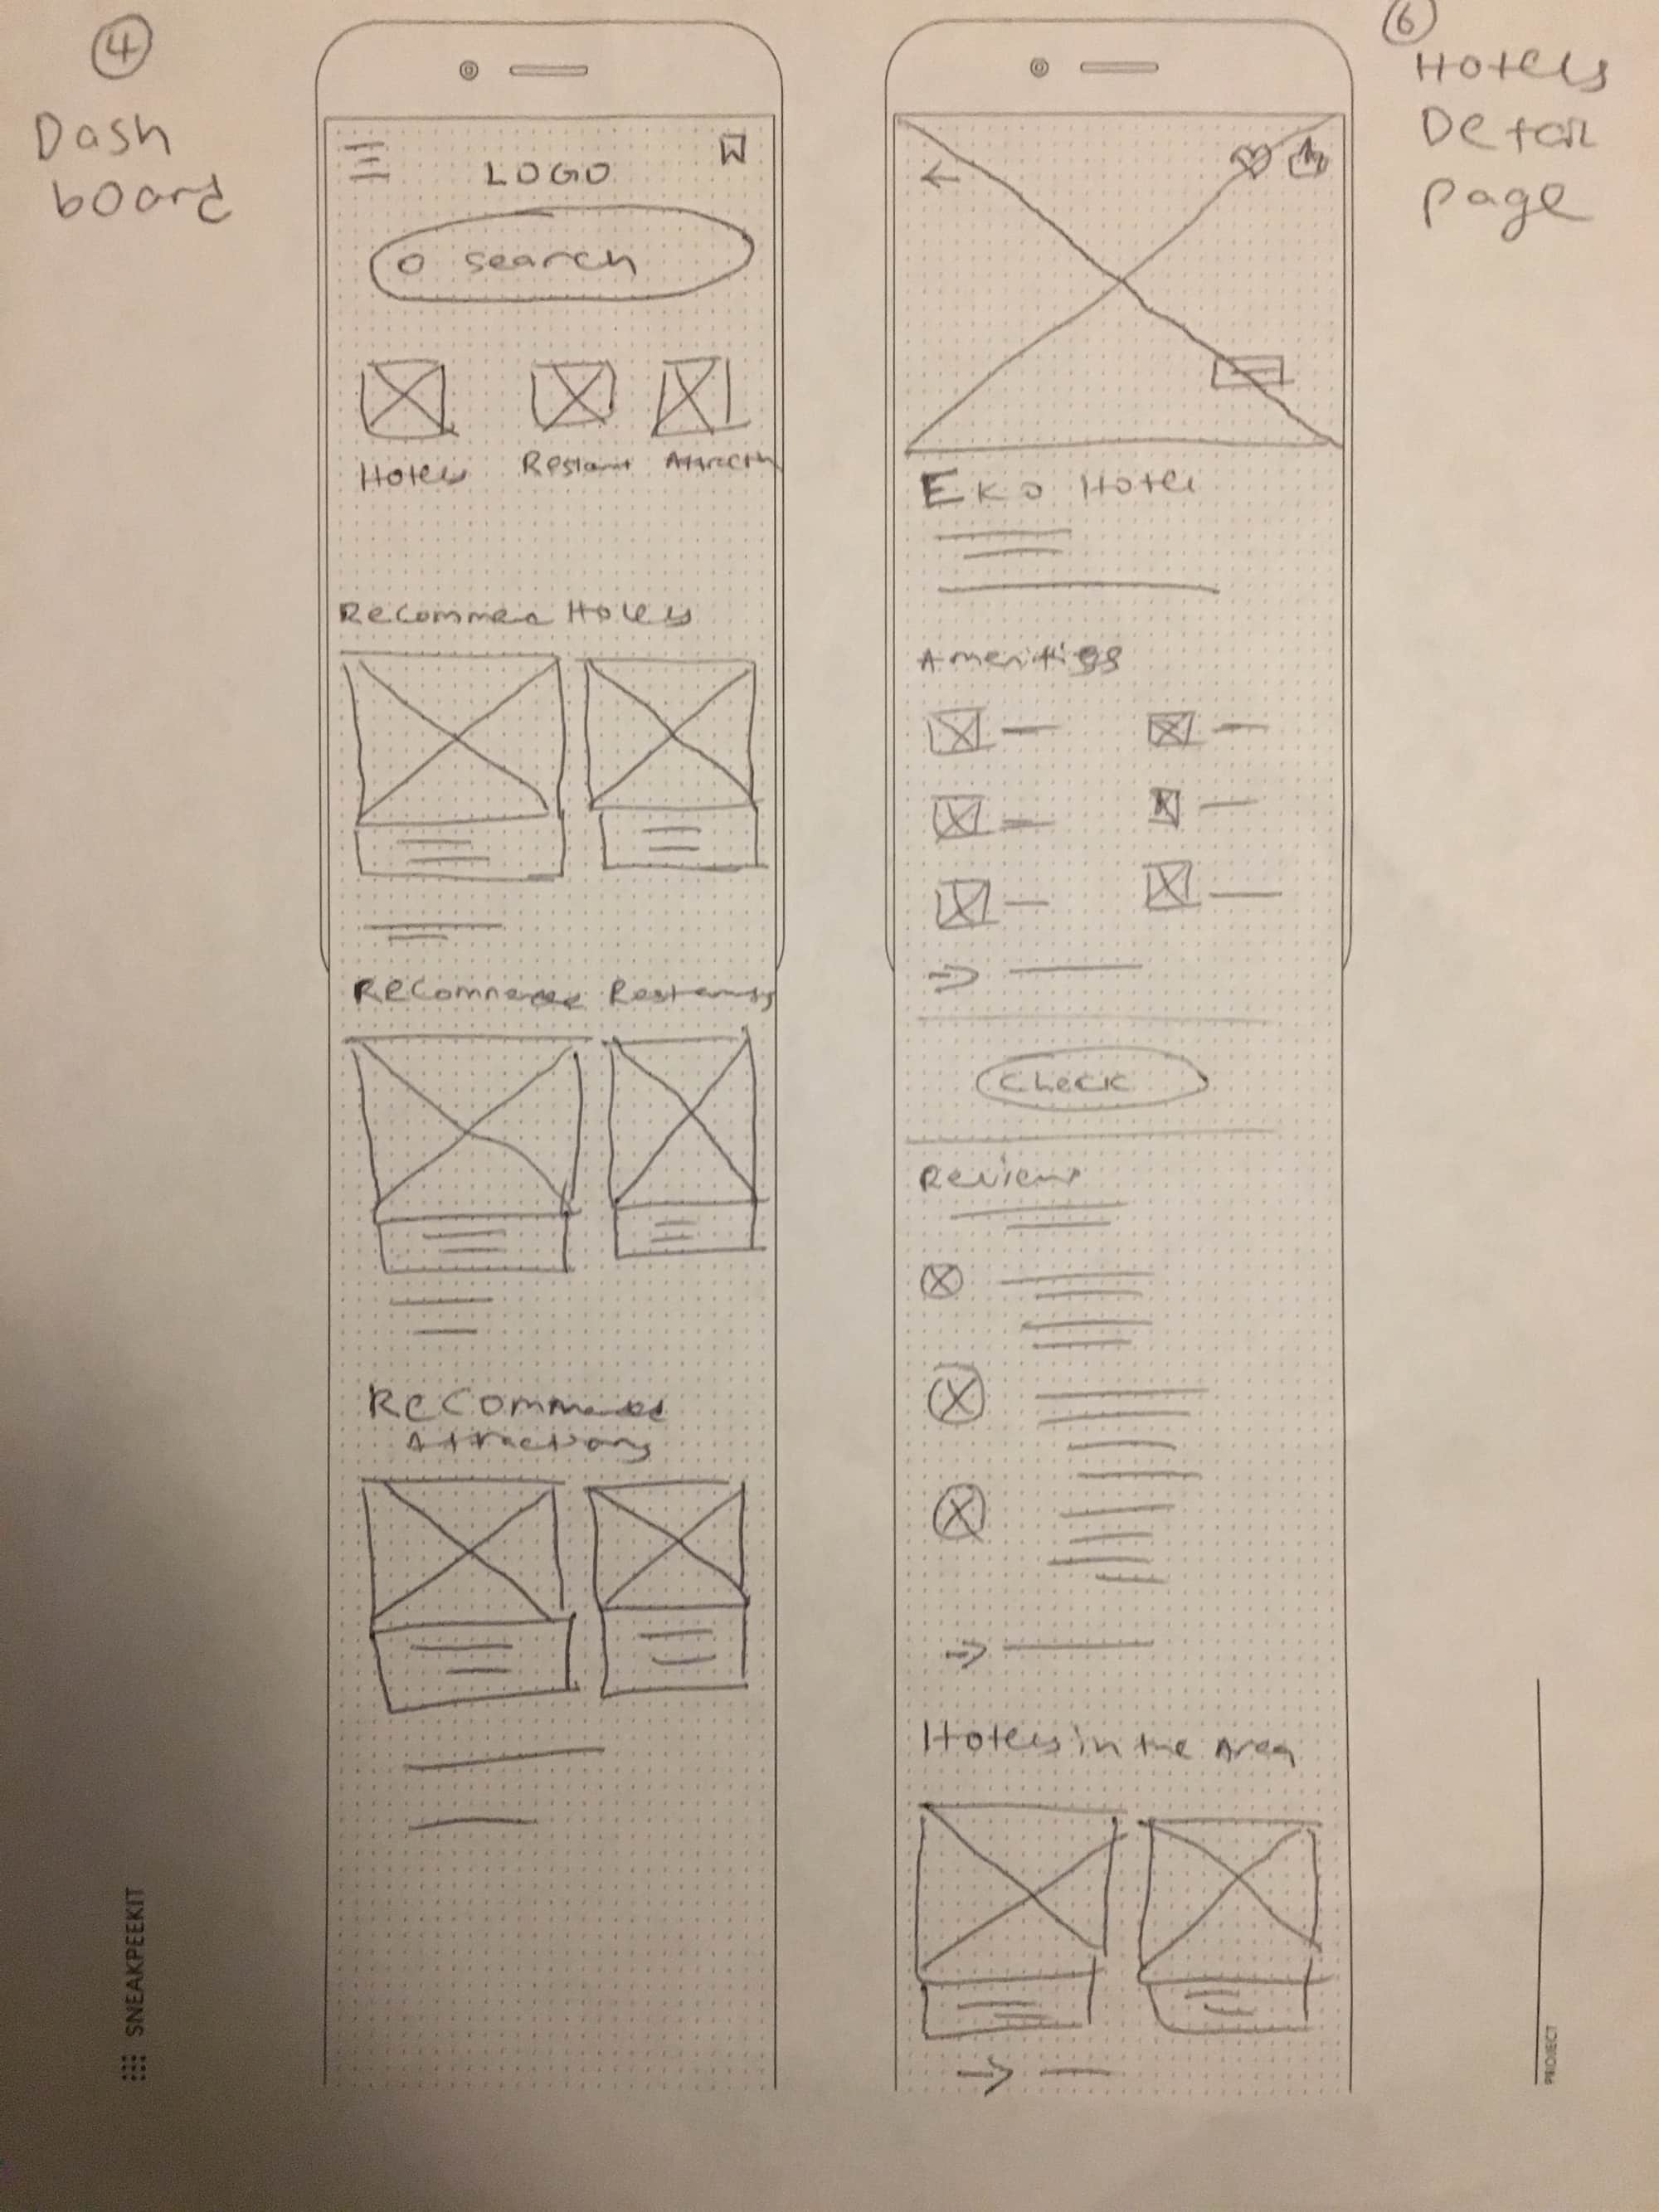 4
Dash
board
LOGO
search
Hotels
Restant
Attracth
Recommed Hotels
Recommended Restants
Recommended
Attractions
SNEAKPEEKIT
6
Hotels
Detail
page
Eko Hotel
Amenities
Check
Review
Hotels in the Area
PROJECT